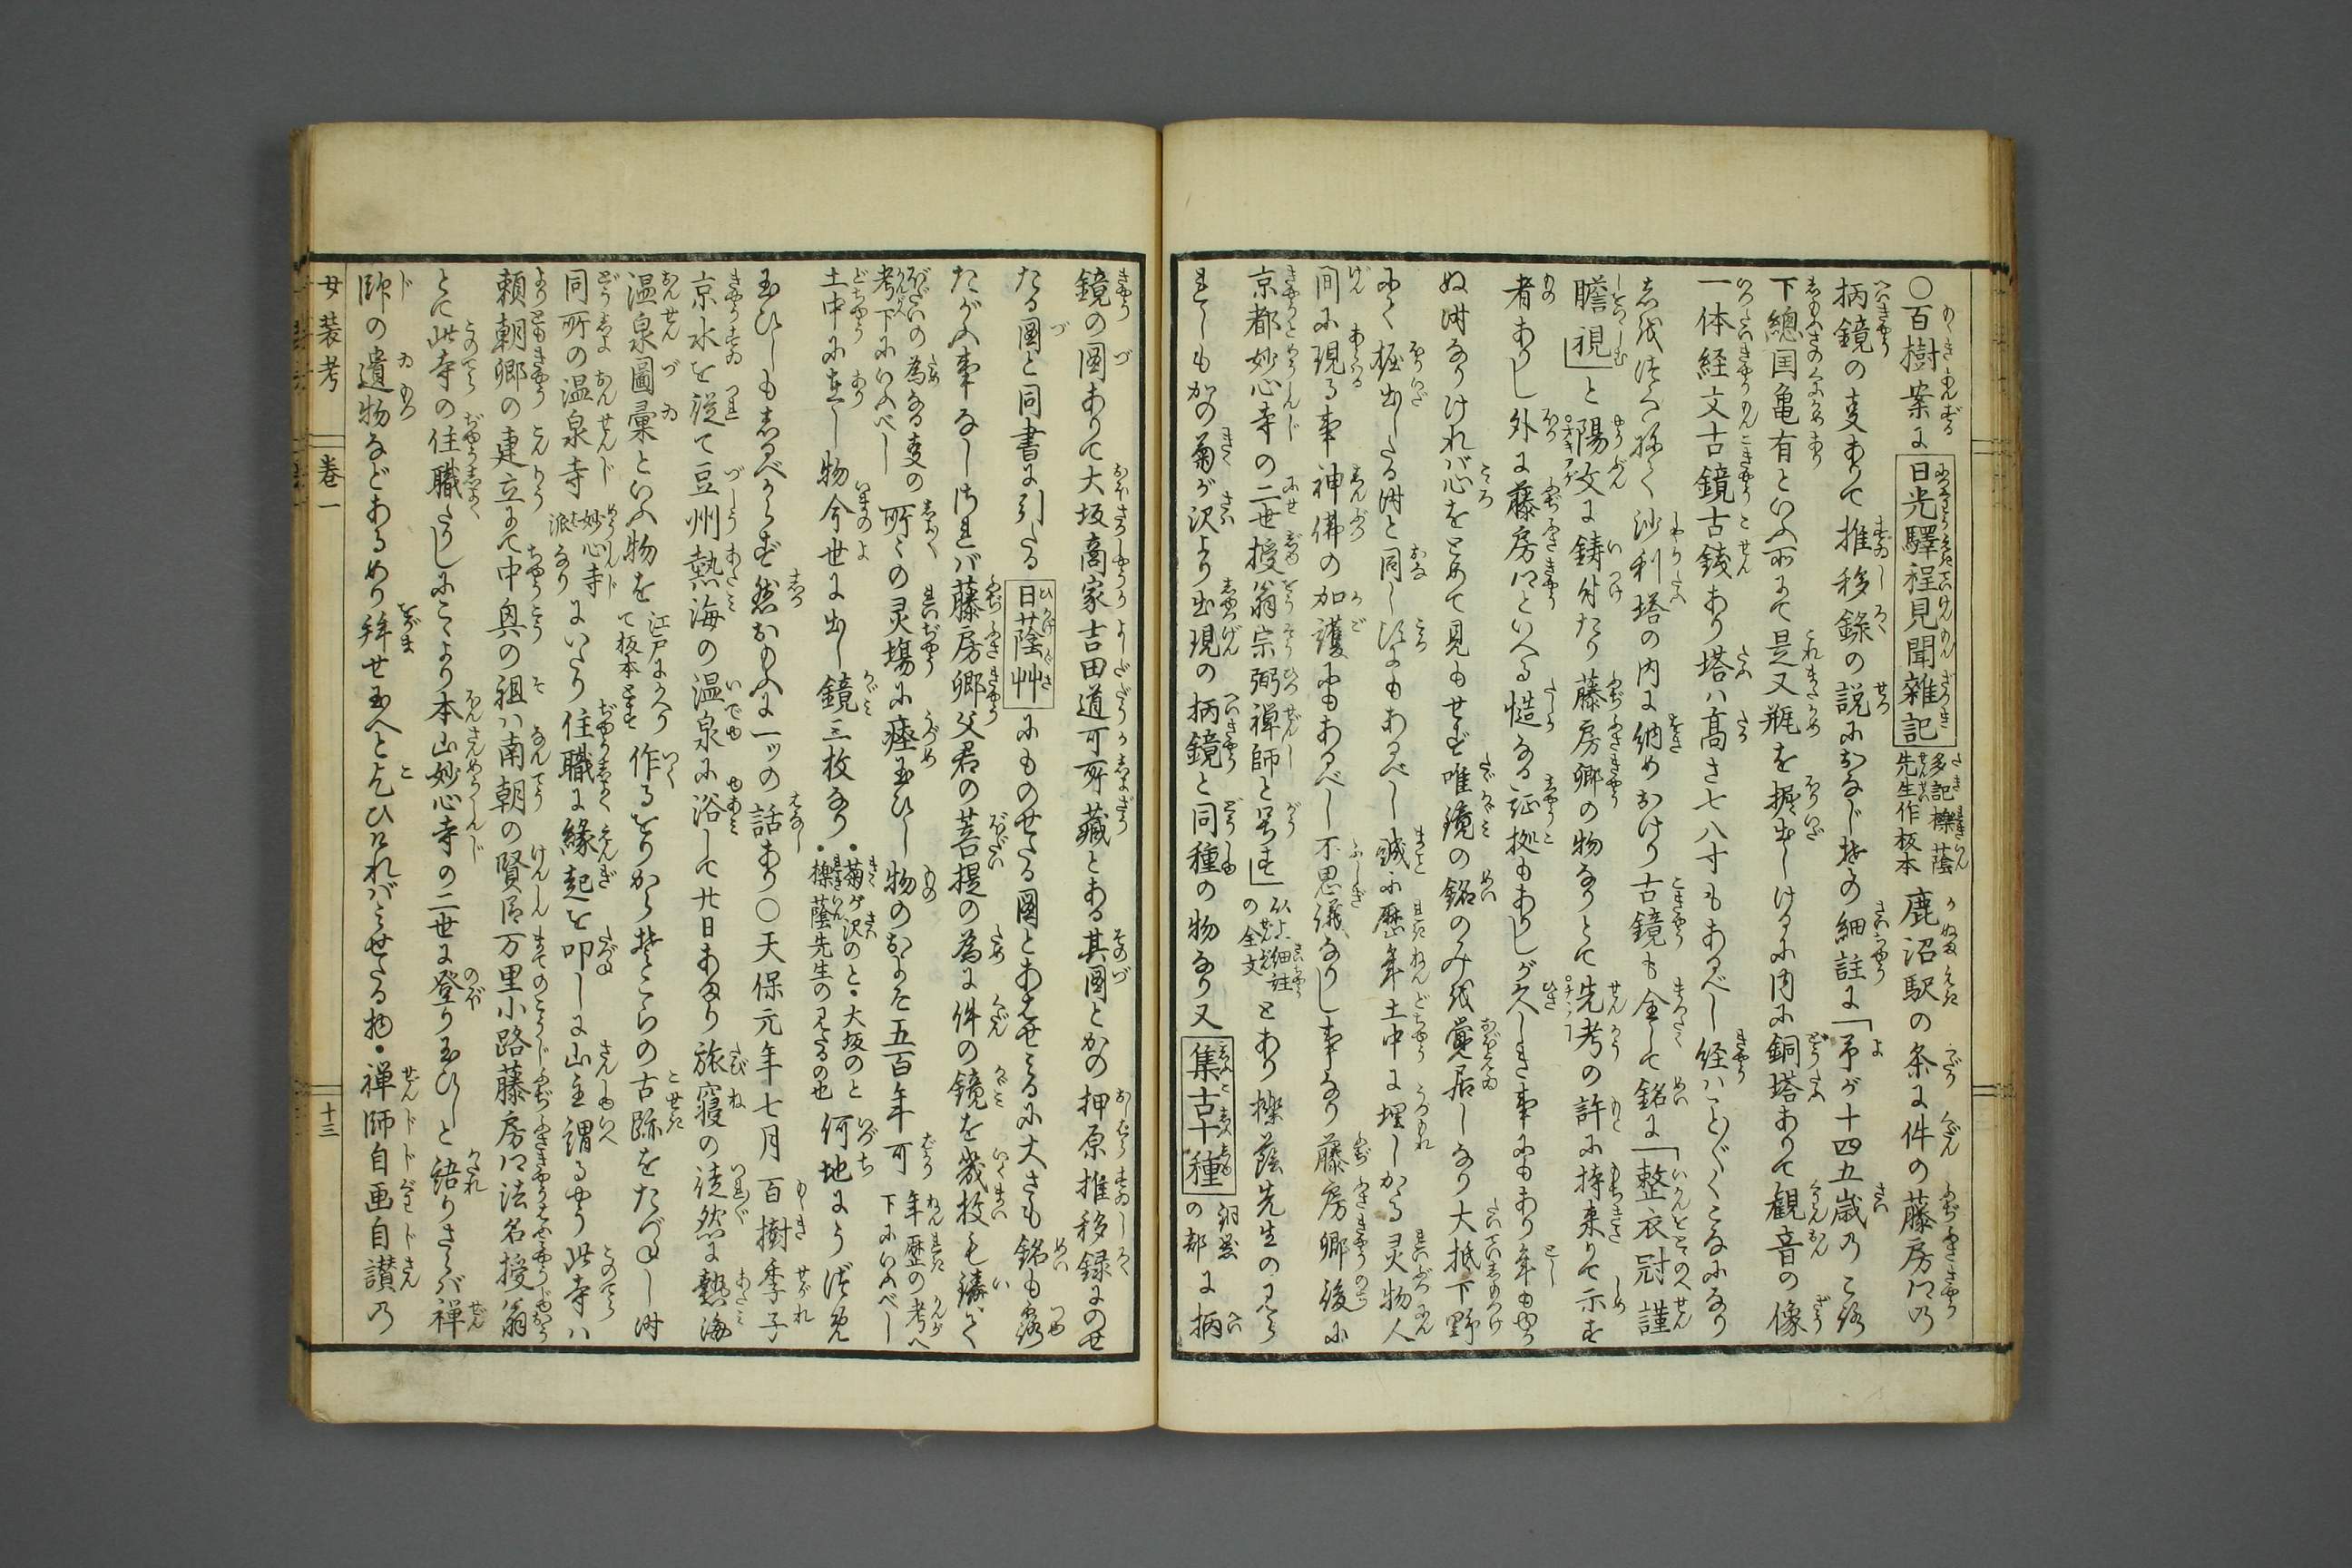 ○百樹案に日光驛程見聞雑記多記櫟蔭先生作板本鹿沼駅の条に件の藤房卿乃
柄鏡の事ありて推移録の説におなじ其の細註に「予が十四五歳乃ころ
下總国亀有といふ所にて是又瓶を掘出しけるに内に銅塔ありて観音の像
一体経文古鏡古銭あり塔ハ髙さ七八寸もあるべし経ハこと〴〵くこなになり
沙利塔の内に納めおけり古鏡も全して銘に「整衣冠謹
瞻視」と陽文に鋳付たり藤房卿の物なりとて先考の許に持来りて示す
者ありし外に藤房卿といへる慥なる証拠もありしが久しき事にもあり年もゆか
ぬ時なりければ心をとめて見もせず唯鏡の銘のみ覚居しなり大抵下野
にて掘出したる時と同じ頃にもあるべし誠に歴年土中に埋しかる灵物人
間に現る事神佛の加護にもあるべし不思議なりし事なり藤房卿後に
京都妙心寺の二世授翁宗弼禅師と号す」以上細註の全文とあり櫟蔭先生の
れしもかの菊が沢より出現の柄鏡と同種の物なり又集古十種銅器の部に柄
鏡の図ありて大坂商家吉田道可所藏とある其図とかの押原推移録にのせ
たる図と同書に引たる日蔭艸にものせたる図とあはせみるに大さも銘も露
たがふ事なしされバ藤房卿父君の菩提の為に件の鏡を幾枚も鋳て
ぼだいの為なる事の考下にいふべし所々の灵場に瘞玉ひし物のおよそ五百年可年歴の考へ下にいふべし
土中に在し物今世に出し鏡三枚なり・菊が沢のと・大坂のと櫟蔭先生の見たるの也何地にうづめ
玉ひしもしるべからず然おもふに一ッの話あり○天保元年七月百樹季子
京水を従て豆州熱海の温泉に浴して廿日あまり旅寝の徒然に熱海
温泉圖彙といふ物を江戸にかへりて板本とす作るをりからそこらの古跡をたづねし時
同所の温泉寺妙心寺派なりにいたり住職に縁起を叩しに山主謂るやう此寺ハ
頼朝卿の建立にて中奥の祖ハ南朝の賢臣万里小路藤房卿法名授翁
とて此寺の住職たりしにこゝより本山妙心寺の二世に登り玉ひしと語りさらバ禅
師の遺物などあるめり拝せ玉へと乞ひければみせたる物・禅師自画自讃乃
女装考　巻一　十三